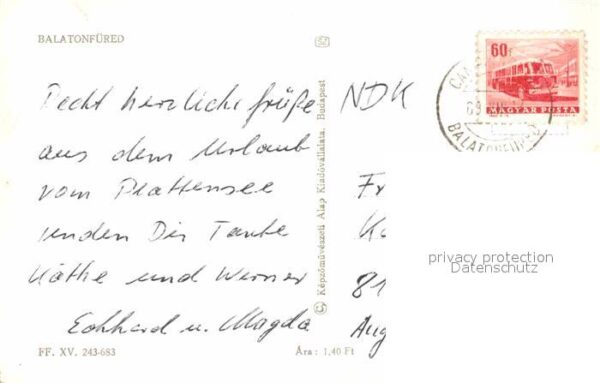 BALATONFÜRED
Recht herzliche Grüße
aus dem Urlaub
vom Plattensee
senden Dir Tante
Käthe und Werner
Eckhard u. Magda
FF. XV. 243-683
Ára : 1.40 Ft
© Képzőművészeti Alap Kiadóvállalata, Budapest
60f
MAGYAR POSTA
69
BALATONFÜRED
NDK
Fr
81
Aug
privacy protection
Datenschutz